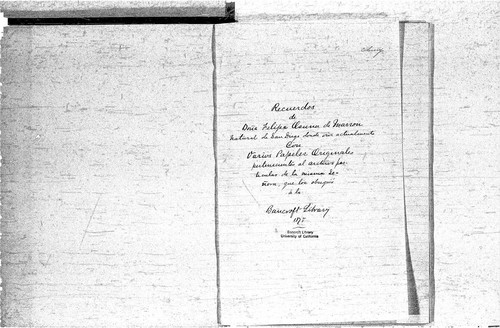 Recuerdos
de
Doña Felipa Osuna de Marron
Natural de San Diego donde vive actualmente
Con
Varios Papeles Originales
pertenecientes al archivo par-
ticular de la misma Se-
ñora, que los obsequió
á la
Bancroft Library
187
Bancroft Library
University of California